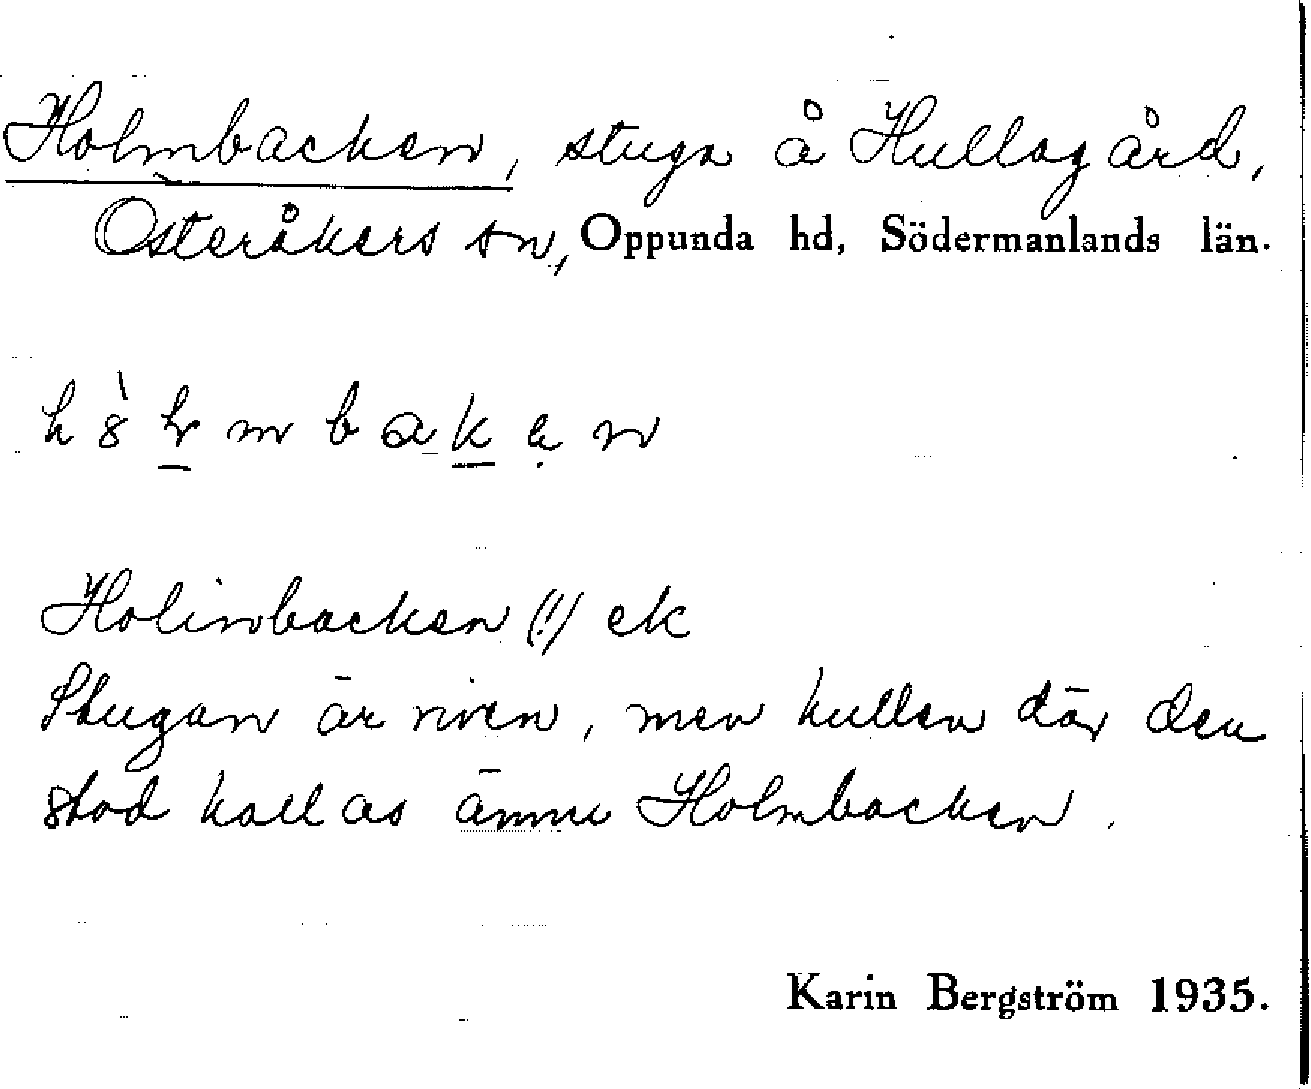 Holmbacken, stuga å Hullagård,
Österåkers sn, Oppunda hd, Södermanlands län.
Holimbacken (!) ek
Stugan är riven, men kullen där den
stod kallas ännu Holmbacken.
Karin Bergström 1935.